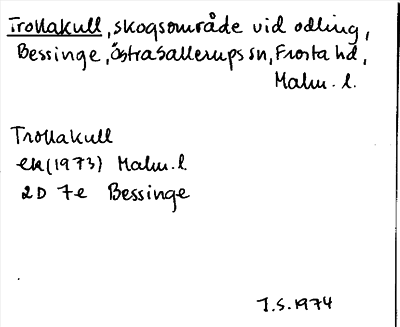 Trollakull, skogsområde vid odling,
Bessinge, Östra Sallerups sn, Frosta hd,
Malm. l.
Trollakull
ek (1973) Malm. l
2D 7e Bessinge
J.S. 1974